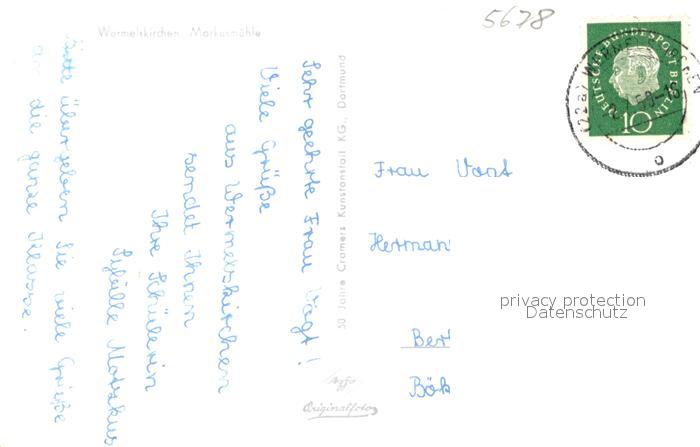 5678
Wermelskirchen Markusmühle
DEUTSCHE BUNDESPOST BERLIN
10
(22a) WERMELSKIRCHEN
Sehr geehrte Frau Vogt!
Viele Grüße
aus Wermelskirchen
sendet Ihnen
Ihre Schülerin
Sybille
Bitte übergeben Sie viele Grüße
an die ganze Klasse.
50 Jahre Cramers Kunstanstalt KG., Dortmund
Originalfoto
Frau Vo
Herman
Ber
Bök
privacy protection
Datenschutz